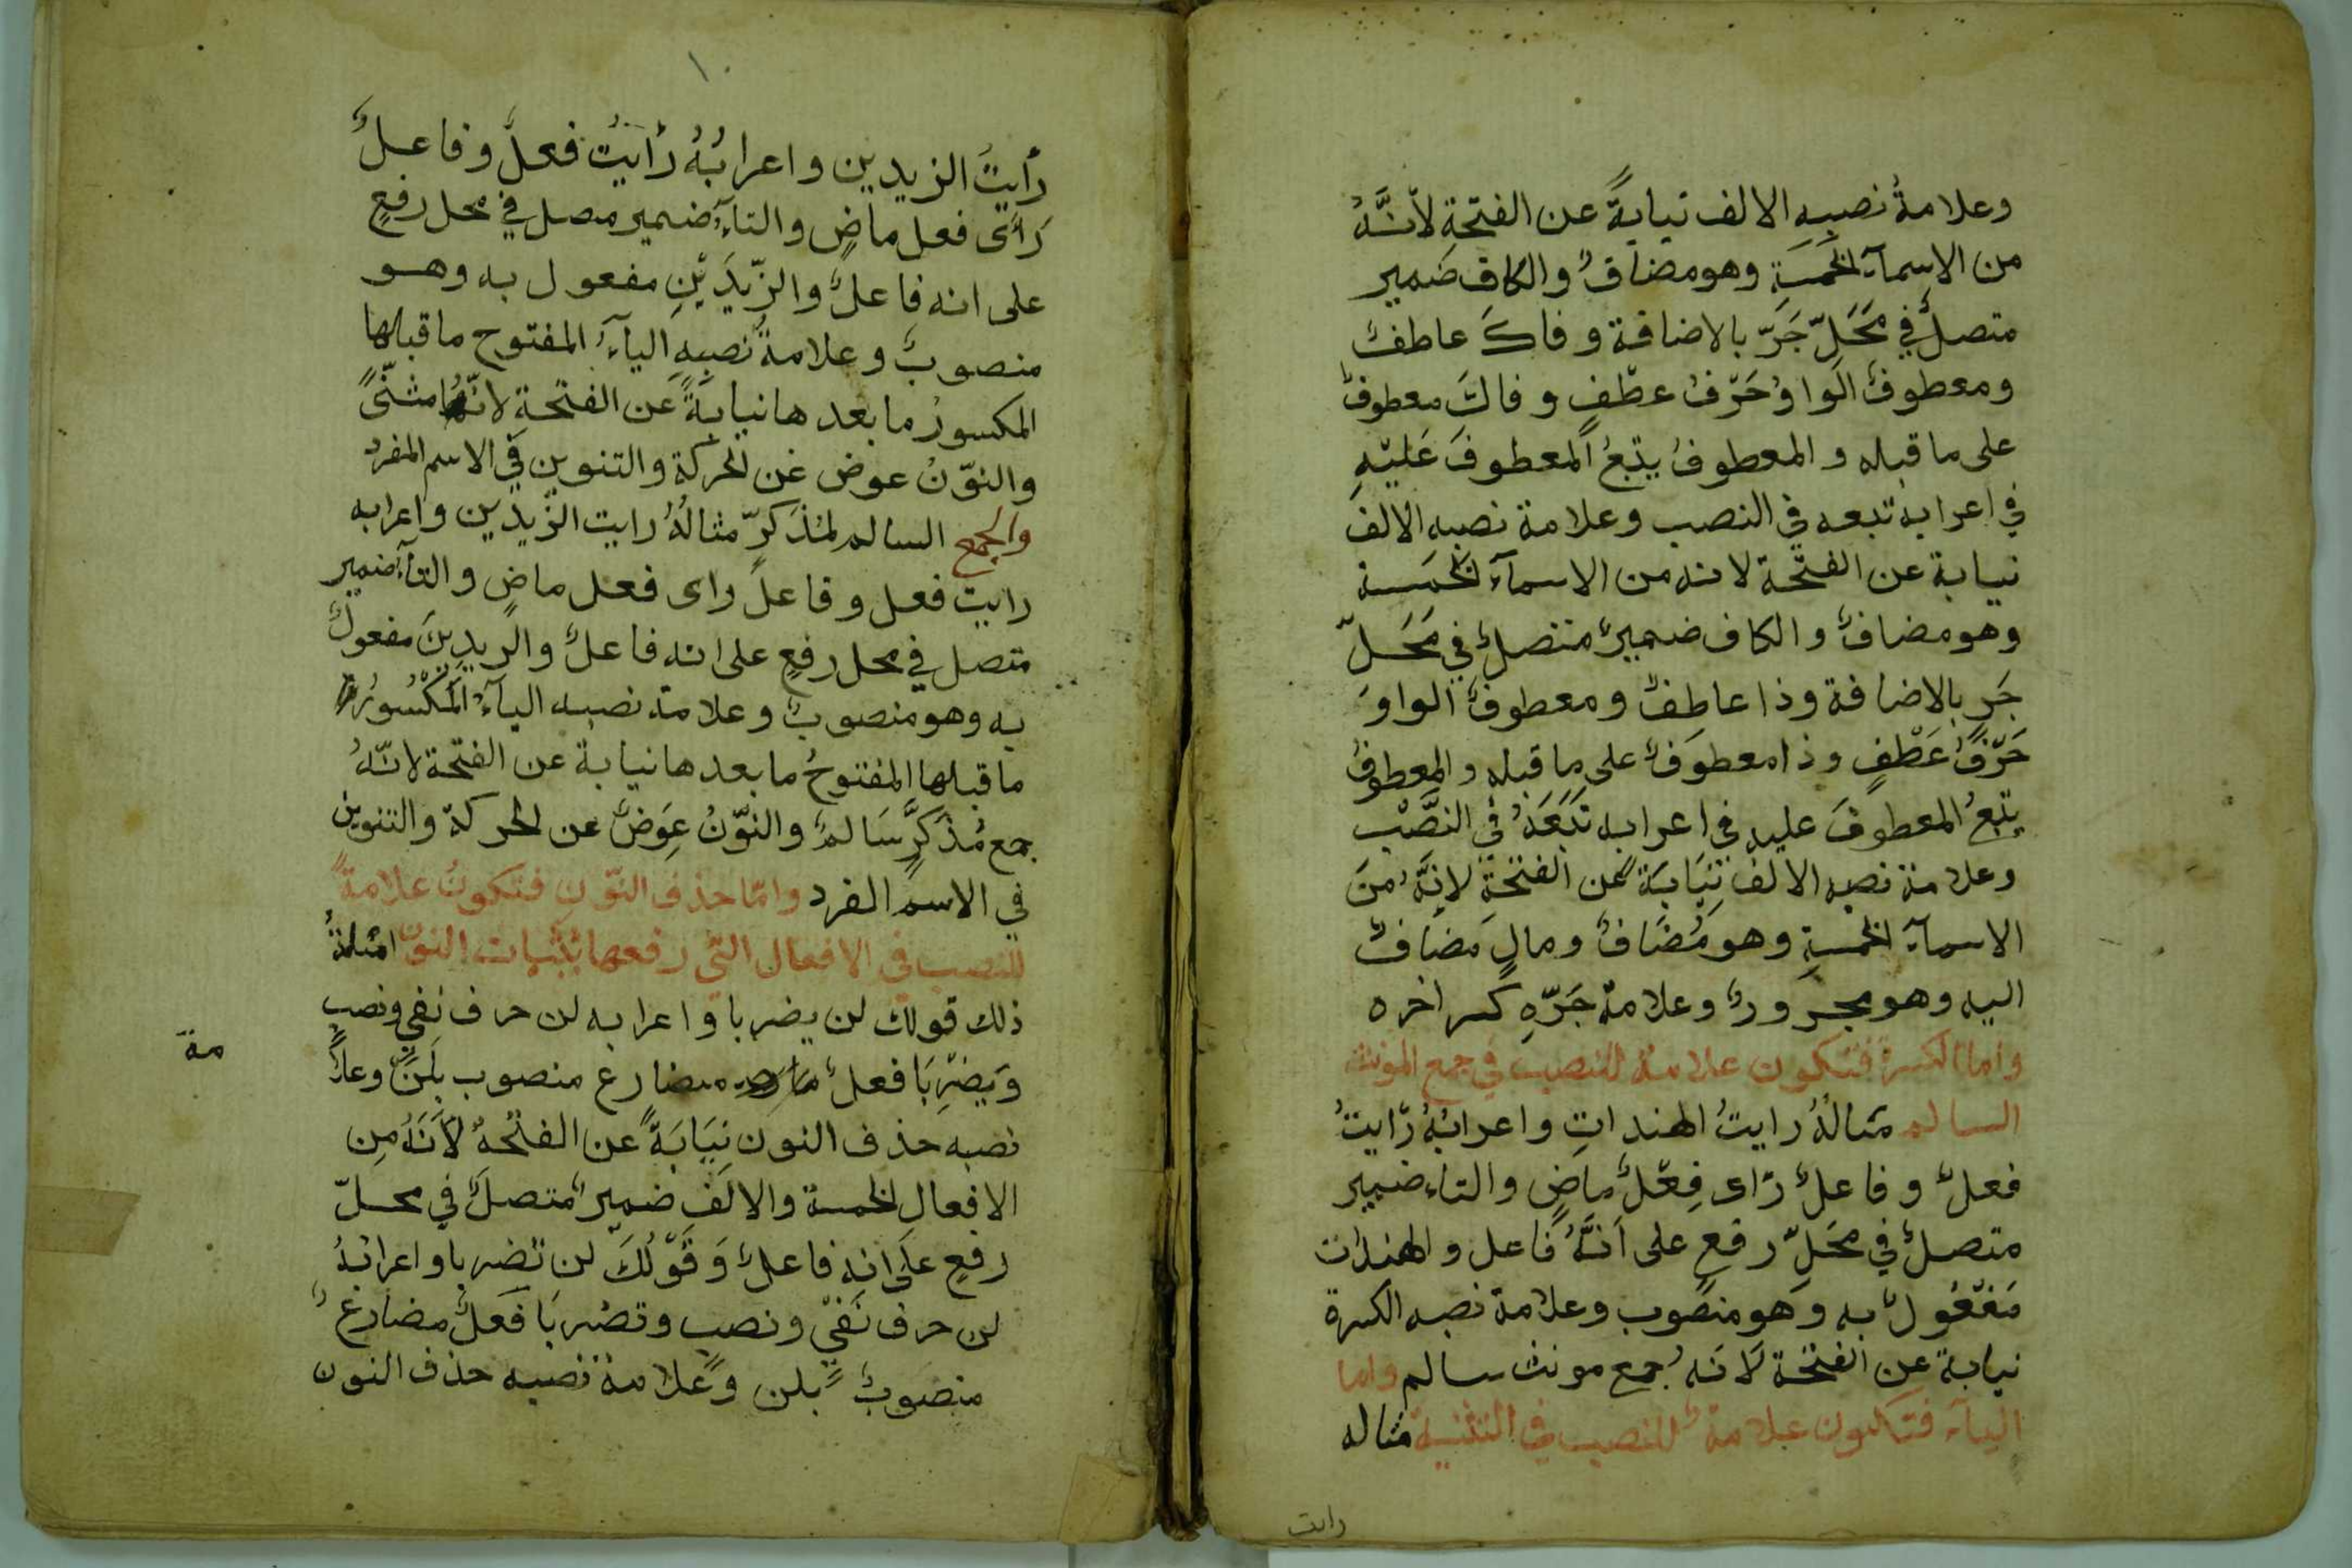 وعلامةُ نصبِهِ الالف نيابةً عن الفتحةِ لأنَّهُ
من الاسمآءِ الخمسَةِ وهو مضافٌ والكاف ضمير
متصلٌ في مَحَلِّ جَرّ بالاضافة وفاكَ عاطفٌ
ومعطوفٌ الواوُ حَرْفُ عطْفٍ وفاكَ معطوفٌ
على ما قبله والمعطوفُ يتبعُ المعطوفَ عَلَيْهِ
في اعرابه تبعه في النصب وعلامة نصبه الالف
نيابة عن الفتْحة لانه من الاسمآءِ الخمسة
وهو مضافٌ والكاف ضميرٌ متصلٌ في مَحَلّ
جَرٍ بالاضافة وذا عاطِفٌ ومعطوفٌ الواوَ
حَرْفُ عَطْفٍ وذا معطوَفٌ على ما قبله والمعطوفُ
يتبعُ المعطوفَ عليه في اعرابه تَبَعَهُ في النَّصْبِ
وعلامة نصبه الالفُ نِيَابَةً عن الفتحةِ لانَّهُ مِنَ
الاسمآءِ الخمسةِ وهو مُضَافٌ ومالٍ مضافٌ
اليه وهو مجرورٌ وعلامة جَرّهِ كسر اخره
واما الكسرة فتكون علامة للنصب في جمع المونث
السالم مثالُهُ رايتُ الهنداتِ واعرابُهُ رَايتُ
فعلٌ وفاعلٌ رَاى فِعْلٌ ماضٍ والتاء ضمير
متصلٌ في مَحَلِّ رفعٍ على اَنَّهُ فاعل والهندات
مَفْعُولٌ به وَهو منصوب وعلامة نصبه الكسرة
نيابة عن الفتحة لَانَهُ جمع مونث سالم واما
اليآء فتكون علامةً للنصب في التثنية مثاله
رايت
١٠
رأيتُ الزيدين واعرابُهُ رَاَيتُ فعلٌ وفاعلٌ
رَأَى فعل ماضٍ والتآءُ ضمير متصل في محل رفعٍ
على انه فاعلٌ والزّيدَيْنِ مفعول به وهو
منصوبٌ وعلامةُ نصبِهِ اليآءُ المفتوح ما قبلها
المكسورُ ما بعدها نيابَةً عَن الفتحةِ لانّهُ مثنًّى
والنوّنُ عوض عَن الحركة والتنوين في الاسم المفرد
والجمع السالم لمذَكرّ مثالُهُ رايت الزّيدين واعرابه
رايت فعل وفاعلٌ راى فعل ماضٍ والتآءُ ضمير
متصل في محل رفعٍ على انه فاعلٌ والزيدِينَ مفعولٌ
به وهو منصوبٌ وعلامة نصبه اليآءُ المَكْسُورُ
ما قبلها المفتوحُ ما بعدها نيابة عن الفتحة لانّهُ
جمع مُذَكرٍّ سَالمٌ والنوّنُ عِوَضٌ عن الحركة والتنوين
في الاسم المفرد وامّا حذف النوّن فتكونُ علامةً
للنصب في الافعال التي رفعها بثبات النون امثلةُ
ذلك قولك لن يضربا واعرابه لن حرف نفي ونصب
وَيضْرِبَا فعلٌ مضارع منصوب بلَنْ وعلا
مة
نصبه حذف النون نِيَابَةً عن الفتْحة لأنَهُ مِن
الافعالِ الخمسة والالَف ضميرٌ متصلٌ في محلّ
رفعٍ علَى انه فاعلٌ وَقَوْلُكَ لن تضربا واعرابُهُ
لن حرف نَفيٍ ونصب وتضربَا فعلٌ مضارعٌ
منصوبٌ بلن وعَلامة نصبه حذف النون